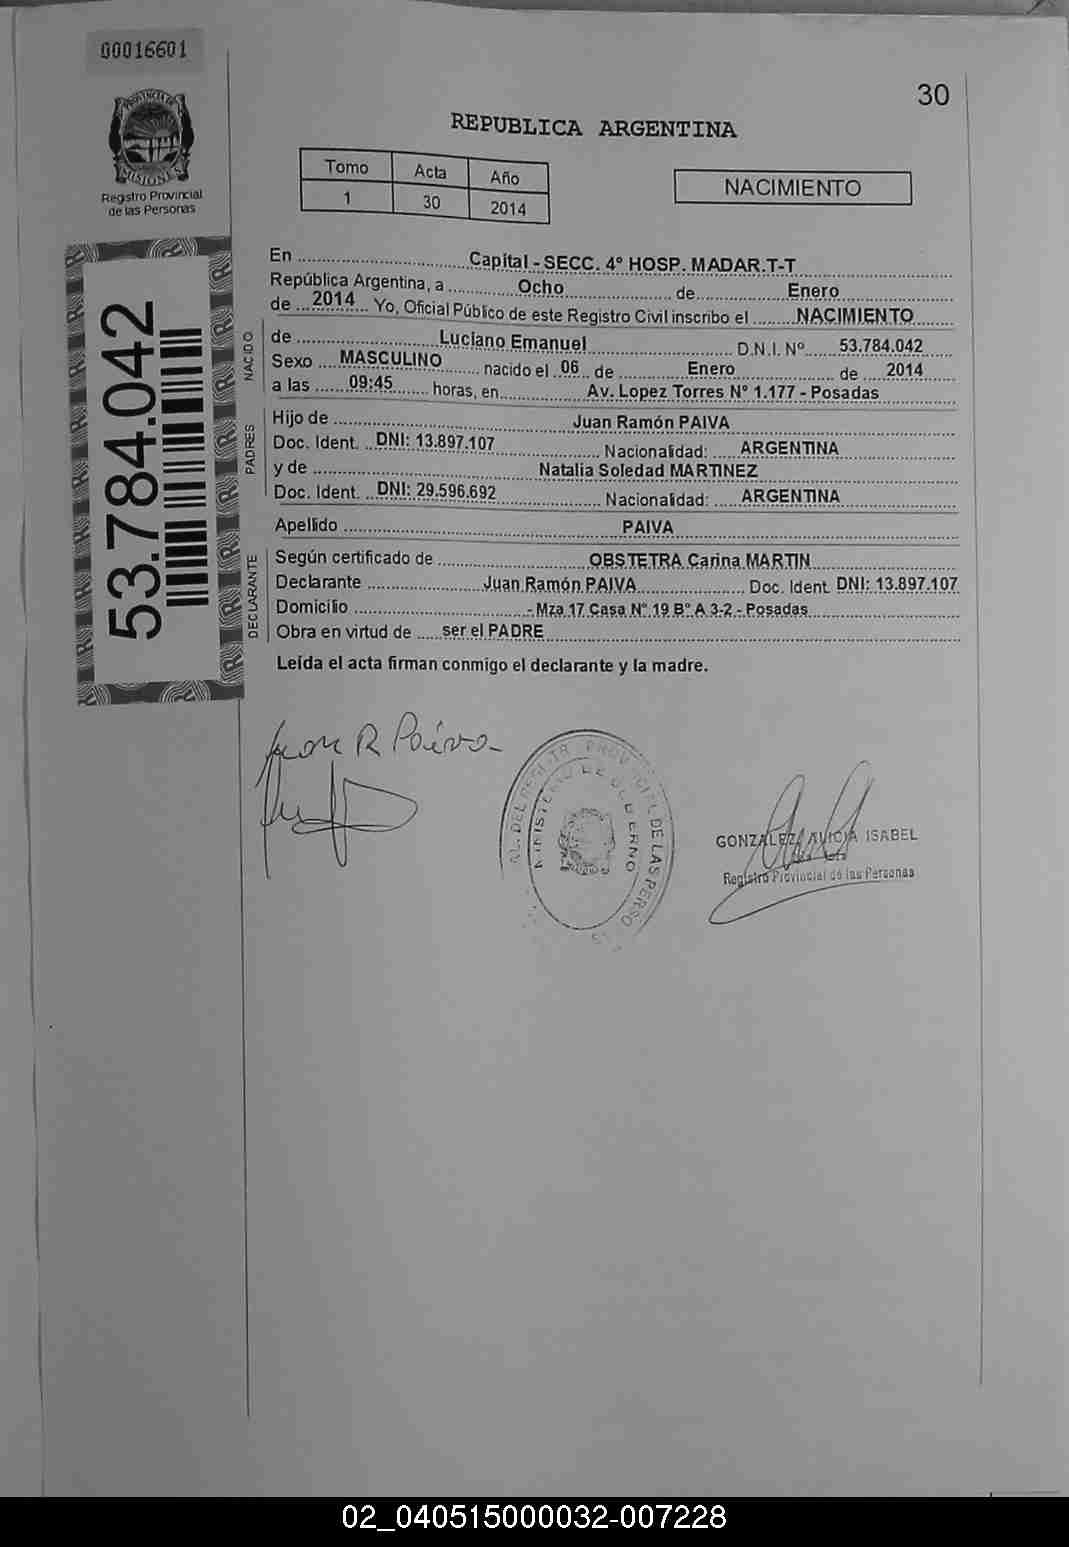 00016601
30
PROVINCIA DE
MISIONES
Registro Provincial
de las Personas
REPUBLICA ARGENTINA
Tomo Acta Año
1 30 2014
NACIMIENTO
53.784.042
En Capital - SECC. 4º HOSP. MADAR.T-T
República Argentina, a Ocho de Enero
de 2014 Yo, Oficial Público de este Registro Civil inscribo el NACIMIENTO
NACIDO
de Luciano Emanuel D.N.I. Nº 53.784.042
Sexo MASCULINO nacido el 06 de Enero de 2014
a las 09:45 horas, en Av. Lopez Torres Nº 1.177 - Posadas
PADRES
Hijo de Juan Ramón PAIVA
Doc. Ident. DNI: 13.897.107 Nacionalidad: ARGENTINA
y de Natalia Soledad MARTINEZ
Doc. Ident. DNI: 29.596.692 Nacionalidad: ARGENTINA
Apellido PAIVA
DECLARANTE
Según certificado de OBSTETRA Carina MARTIN
Declarante Juan Ramón PAIVA Doc. Ident. DNI: 13.897.107
Domicilio - Mza 17 Casa Nº 19 Bº A 3-2 - Posadas
Obra en virtud de ser el PADRE
Leída el acta firman conmigo el declarante y la madre.
Juan R Paiva
MINISTERIO DE GOBIERNO
GONZALEZ, ALICIA ISABEL
Registro Provincial de las Personas
02_040515000032-007228